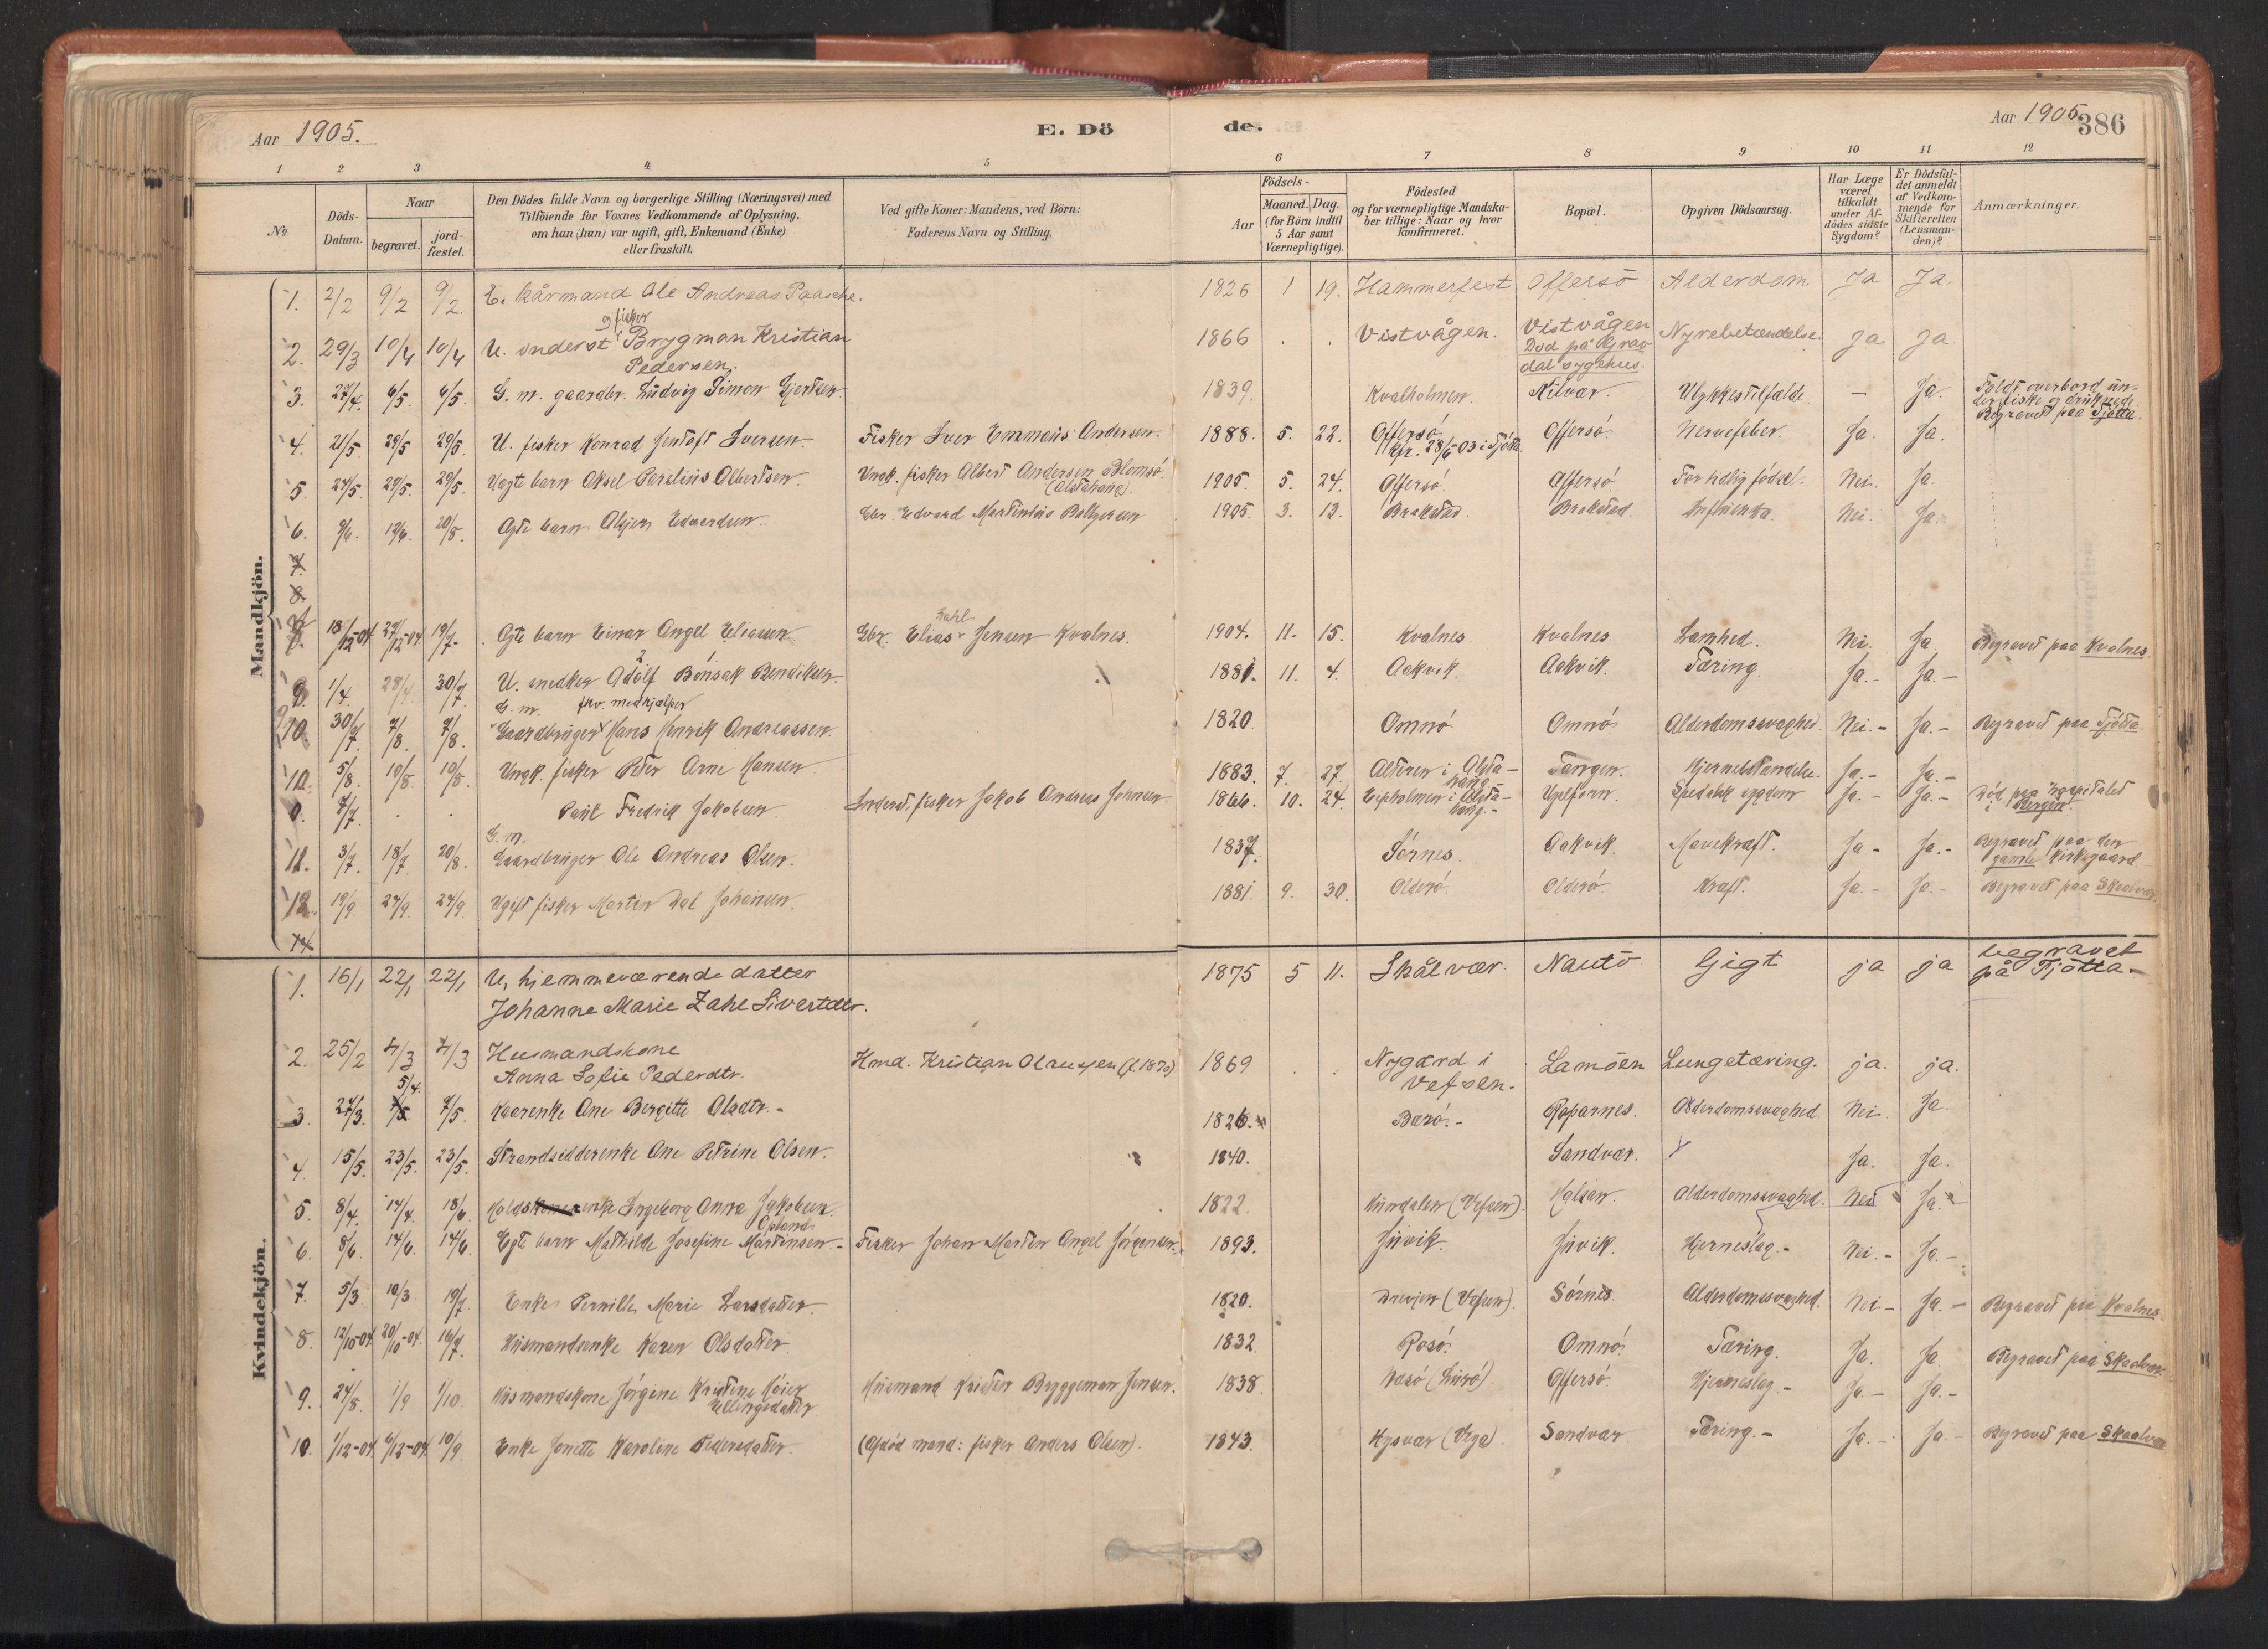 Aar 1905.
E. Dö
de.
Aar 1905
386
1 2 3 4 5 6 7 8 9 10 11 12
No
Döds-Datum.
Naar
begravet.
jord-fæstet.
Den Dödes fulde Navn og borgerlige Stilling (Næringsvei) med
Tilföiende for Voxnes Vedkommende af Oplysning,
om han (hun) var ugift, gift, Enkemand (Enke)
eller fraskilt.
Ved gifte Koner: Mandens, ved Börn:
Faderens Navn og Stilling.
Födsels-
Aar
Maaned. Dag.
(for Börn indtil
5 Aar samt
Værnepligtige).
Födested
og for værnepligtige Mandska-
ber tillige: Naar og hvor
konfirmeret.
Bopæl.
Opgiven Dödsaarsag.
Har Læge
været
tilkaldt
under Af-
dödes sidste
Sygdom?
Er Dödsfal-
det anmeldt
af Vedkom-
mende for
Skifteretten
(Lensman-
den)?
Anmærkninger.
Mandkjön.
1. 2/2 9/2 9/2. E. kårmand Ole Andreas Paasche. 1826 1 19. Hammerfest Offersö Alderdom Ja Ja.
og fisker
2. 29/3 10/4 10/4 U. inderst Brygman Kristian 1866 . . Vistvågen. Vistvågen Nyrebetændelse. Ja Ja
Pedersen. Död på Grav
dal sygehus.
3. 27/4. 6/5. 6/5. G. m. gaardbr. Ludvig Simon Gjertsen. 1839. Kvalholmen. Kilvær. Ulykkestilfælde. — Ja. Faldt overbord un-
der fiske og druknede.
Begravet paa Tjøtta.
4. 21/5. 29/5 29/5. U. fisker Konrad Jentoft Iversen. Fisker Iver Emmaus Andersen. 1888. 5. 22. Offersö. Offersö. Nervefeber. Ja. Ja.
kfr. 28/6-03 i Tjötta
5. 24/5. 29/5. 29/5. Uægte barn Aksel Parelius Albertsen. Ungk. fisker Albert Andersen Blomsö. 1905. 5. 24. Offersö. Offersö For tidlig fødsel. Nei. Ja.
(Alstahaug).
6. 9/6. 19/6. 20/8. Ægte barn Asbjørn Edvardsen. Gbr. Edvard Martinius 1905. 3. 13. Brakstad. Brakstad. Influensa. Nei. Ja.
7.
8.
Zahl
18/12-04. 27/12-04 19/7. Ægte barn Einar Angel Eliassen Gbr. Elias Jensen Kvalnes. 1904. 11. 15. Kvalnes. Kvalnes Lamhed. Nei. Ja Begravet paa Kvalnes.
2 1
1/4. 28/4. 30/7 U. snedker Adolf Bonsak Bendiksen. 1881. 11. 4. Aakvik. Aakvik. Tæring. Ja.- Ja.-
G. m. fhv. medhjælper
30/7. 7/8. 7/8. Gaardbruger Hans Henrik Andreassen. 1820 Omnø Omnø Alderdomssvaghed. Nei.- Ja.- Begravet paa Tjøtta
10. 5/8. 10/8. 10/8. Ungk. fisker Peter Arne Hansen. 1883. 7. 27. Altren i Alsta-haug Tangen. Hjernebetændelse. Ja.- Ja.-
0. 7/7. . . Paul Fredrik Jakobsen. Inderst, fisker Jakob Andreas Johnsen. 1866. 10. 24. i Alsta-haug.- Spedalsk sygdom Ja.- Ja.- Død paa Hospitalet
i Bergen
G. m.
11. 3/7. 18/7. 20/8. Gaardbruger Ole Andreas Olsen. 1837. Sørnes. Aakvik. Mavekræft. Ja- Ja.- Begravet paa den
gamle kirkegaard
12. 19/9. 24/9. 24/9. Ugift fisker Martin Dal Johansen. 1881. 9. 30. Alderø. Alderø. Kræft. Ja.- Ja.- Begravet paa Skaalvær
14
Kvindekjön.
1. 16/1 22/1 22/1 U, hjemmeværende datter 1875 5 11. Skålvær. Nautö Gigt ja ja begravet
på Tjötta-
Johanne Marie Zahl Sivertdtr.
2. 25/2 4/3 4/3 Husmandskone Hmd. Kristian Olaussen (f. 1870) 1869 . . Nygård i Lamöen Lungetæring. ja. ja.
Anna Sofie Pederdtr. Vefsen.
5/4.
3. 27/3. 7/5. Kaarenke Ane Bergitte Olsdtr.- 1826. Barø.- Roparnes. Alderdomssvaghed Nei Ja.
4. 15/5. 23/5. 23/5. Strandsidderenke Ane Petrine Olsen. 1840. Sandvær. Ja. Ja.
5. 8/4. 14/4. 18/6 Holdsenke Ingeborg Anna Jakobsen. 1822. (Vefsen). Alderdomssvaghed. Nei Ja.
6. 8/6. 14/6. 14/6. Egte barn Mathilde Josefine Martinsen.- Fisker Johan Martin Angel Jörgensen. 1893. Juvik. Juvik. Hjerneslag.- Nei.- Ja.-
7. 5/3. 10/3. 19/7. Enke Pernille Marie Larsdatter. 1820. Drevjen (Vefsen). Sørnes. Alderdomssvaghed. Nei- Ja.- Begravet paa Kvalnes.
8. 12/10-04. 20/10-04. 16/7. Husmandsenke Karen Olsdatter. 1832. Rosø. Omnø. Tæring. Ja. Ja Begravet paa Skaalvær
9. 24/8. 1/9. 1/10. Husmandskone Jørgine Kristine Høier Husmand Krister Bryggeman Jensen. 1838. Offersø. Hjerneslag.- Ja.- Ja.-
Ellingsdatter
10. 1/12-04. 6/12-04. 10/9. Enke Jonette Karoline Pedersdatter. (Afdød mand: fisker Anders Olsen). 1843. Hysvær (Vega). Sandvær Tæring.- Ja.- Ja- Begravet paa Skaalvær